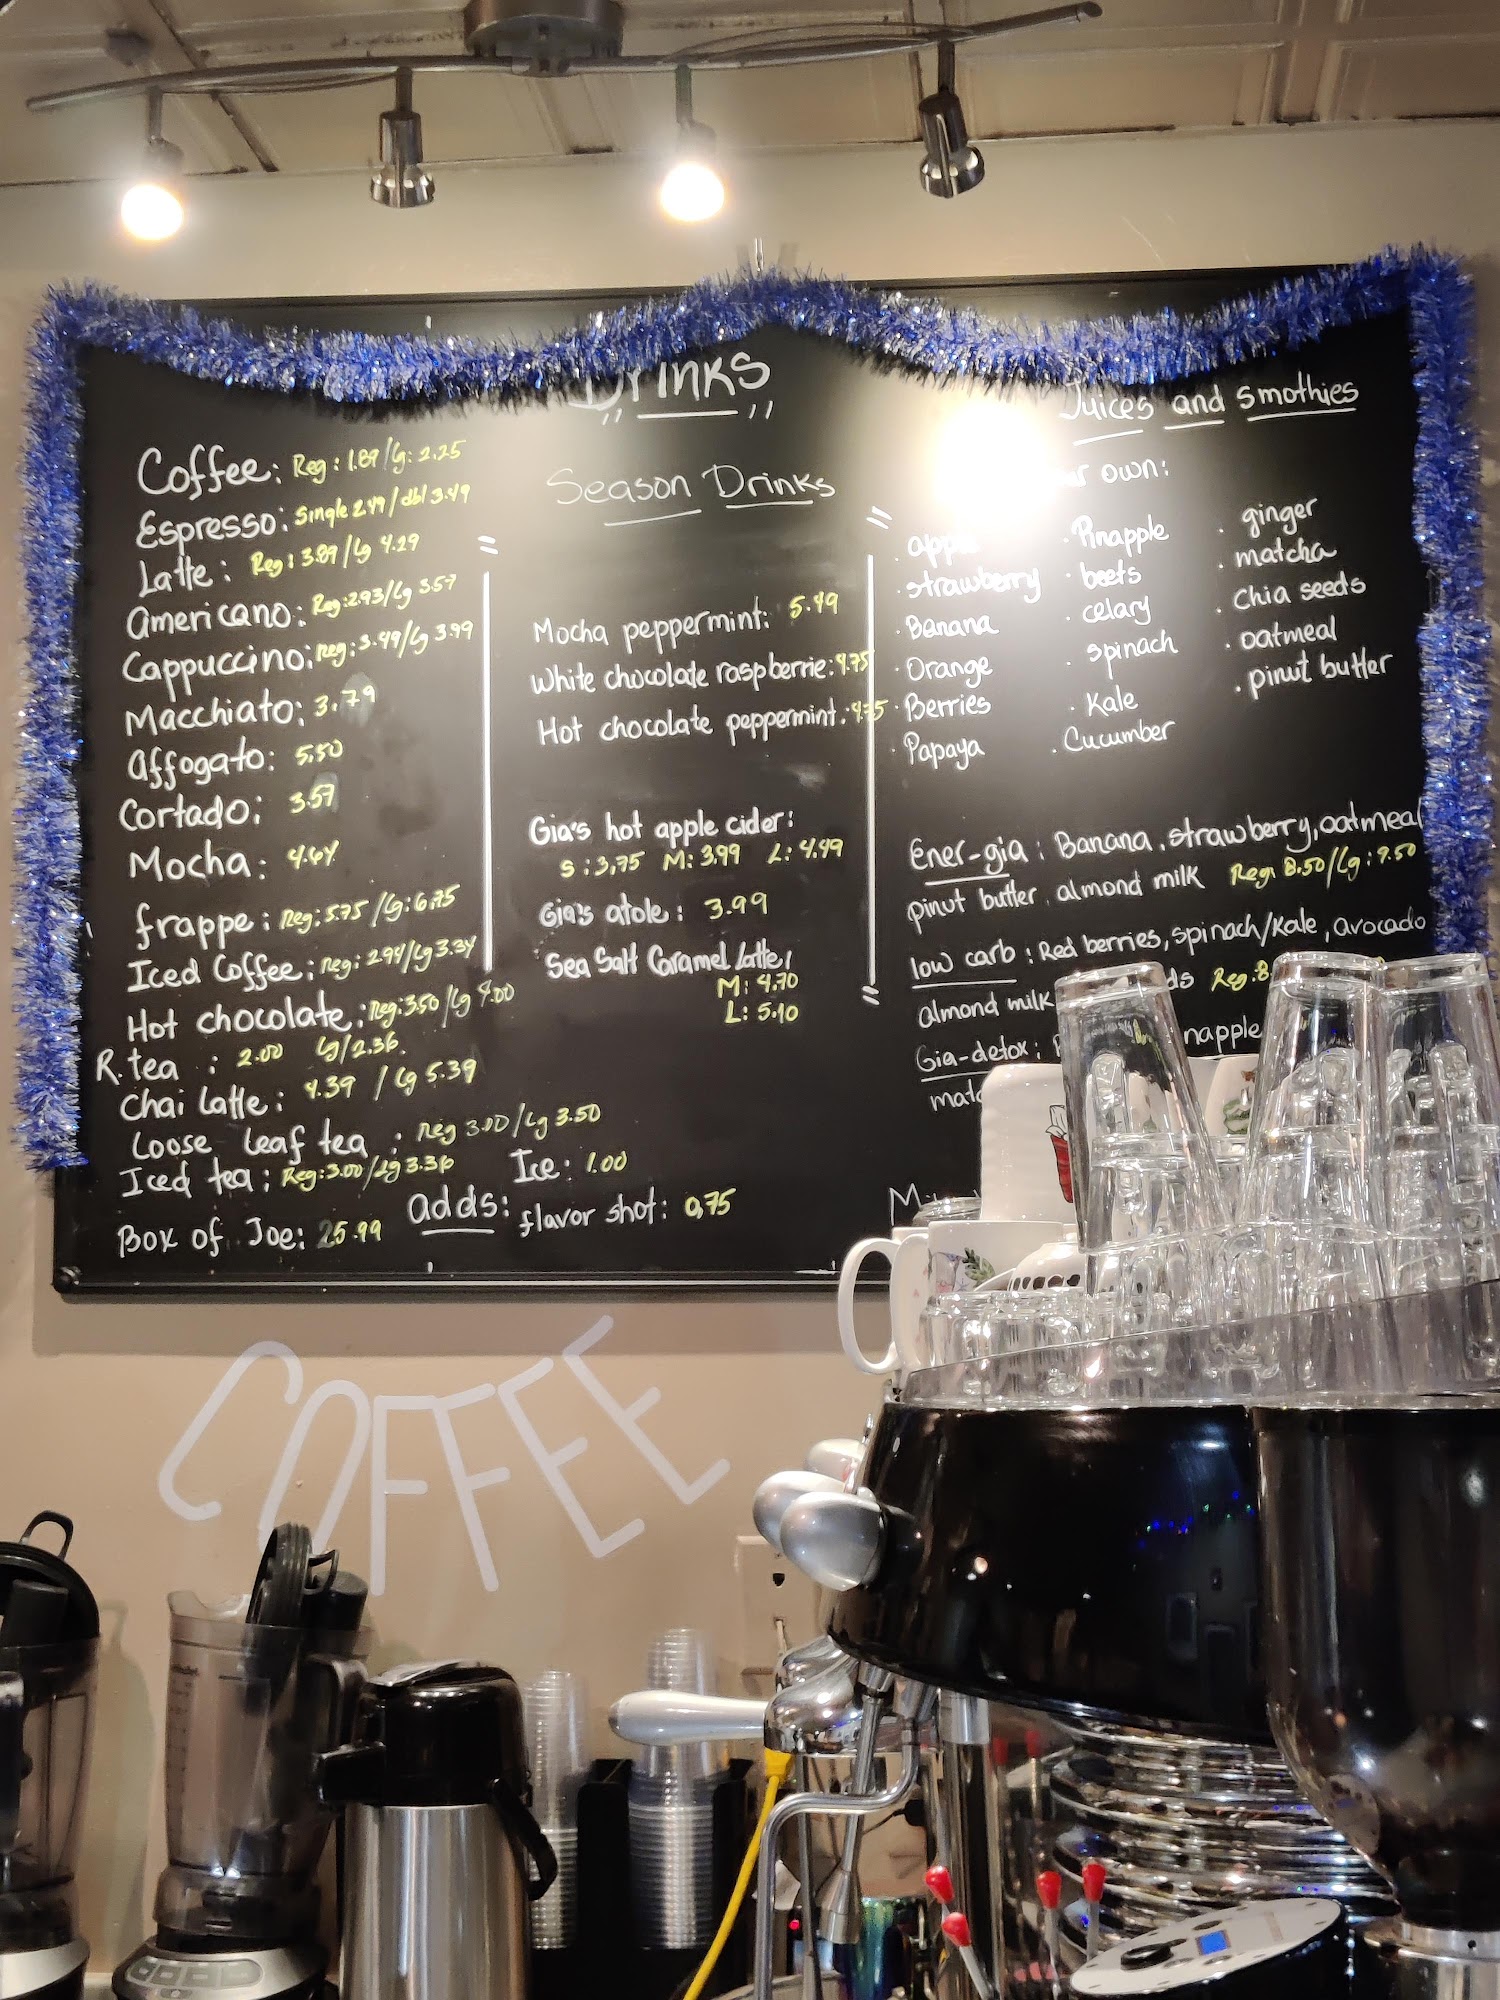 Drinks
Coffee: Reg: 1.89/lg: 2.25
Espresso: Single 2.49/dbl 3.49
Latte: Reg: 3.89/lg 4.29
Americano: Reg: 2.93/lg 3.57
Cappuccino: Reg: 3.49/lg 3.99
Macchiato: 3.79
Affogato: 5.50
Cortado: 3.57
Mocha: 4.64
frappe: Reg: 5.75/lg: 6.75
Iced Coffee: Reg: 2.94/lg 3.34
Hot chocolate: Reg: 3.50/lg 4.00
R. tea : 2.00 lg/2.36
Chai latte: 4.39 / lg 5.39
Loose leaf tea : Reg 3.00/lg 3.50
Iced tea: Reg: 3.00/lg 3.36
Box of Joe: 25.99
adds:
Ice: 1.00
flavor shot: 0,75
Season Drinks
Mocha peppermint: 5.49
White chocolate raspberrie: 4.75
Hot chocolate peppermint: 4.75
Gia's hot apple cider:
S: 3,75 M: 3.99 L: 4.49
Gia's atole: 3.99
Sea Salt Caramel latte,
M: 4.70
L: 5.10
Juices and Smothies
own:
· Pinapple · ginger
· strawberry · beets · matcha
· Banana · celary · chia seeds
· Orange · spinach · oatmeal
· Berries · Kale · pinut butter
· Papaya · Cucumber
Ener-gia: Banana, strawberry, oatmeal
pinut butter, almond milk Reg. 8.50/lg: 9.50
low carb: Red berries, spinach/kale, avocado
almond milk Reg: 8
Gia-detox:
COFFEE